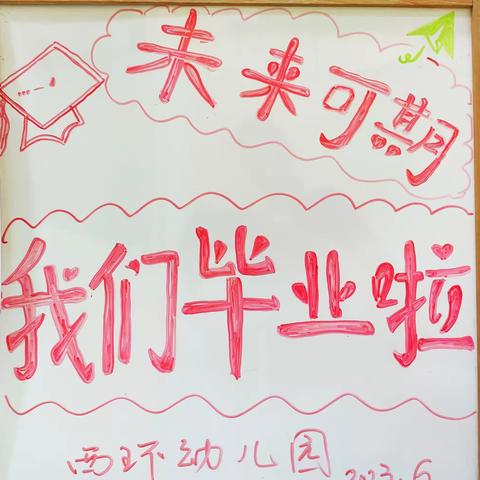 未来可期
我们毕业啦
西环幼儿园
2023.6